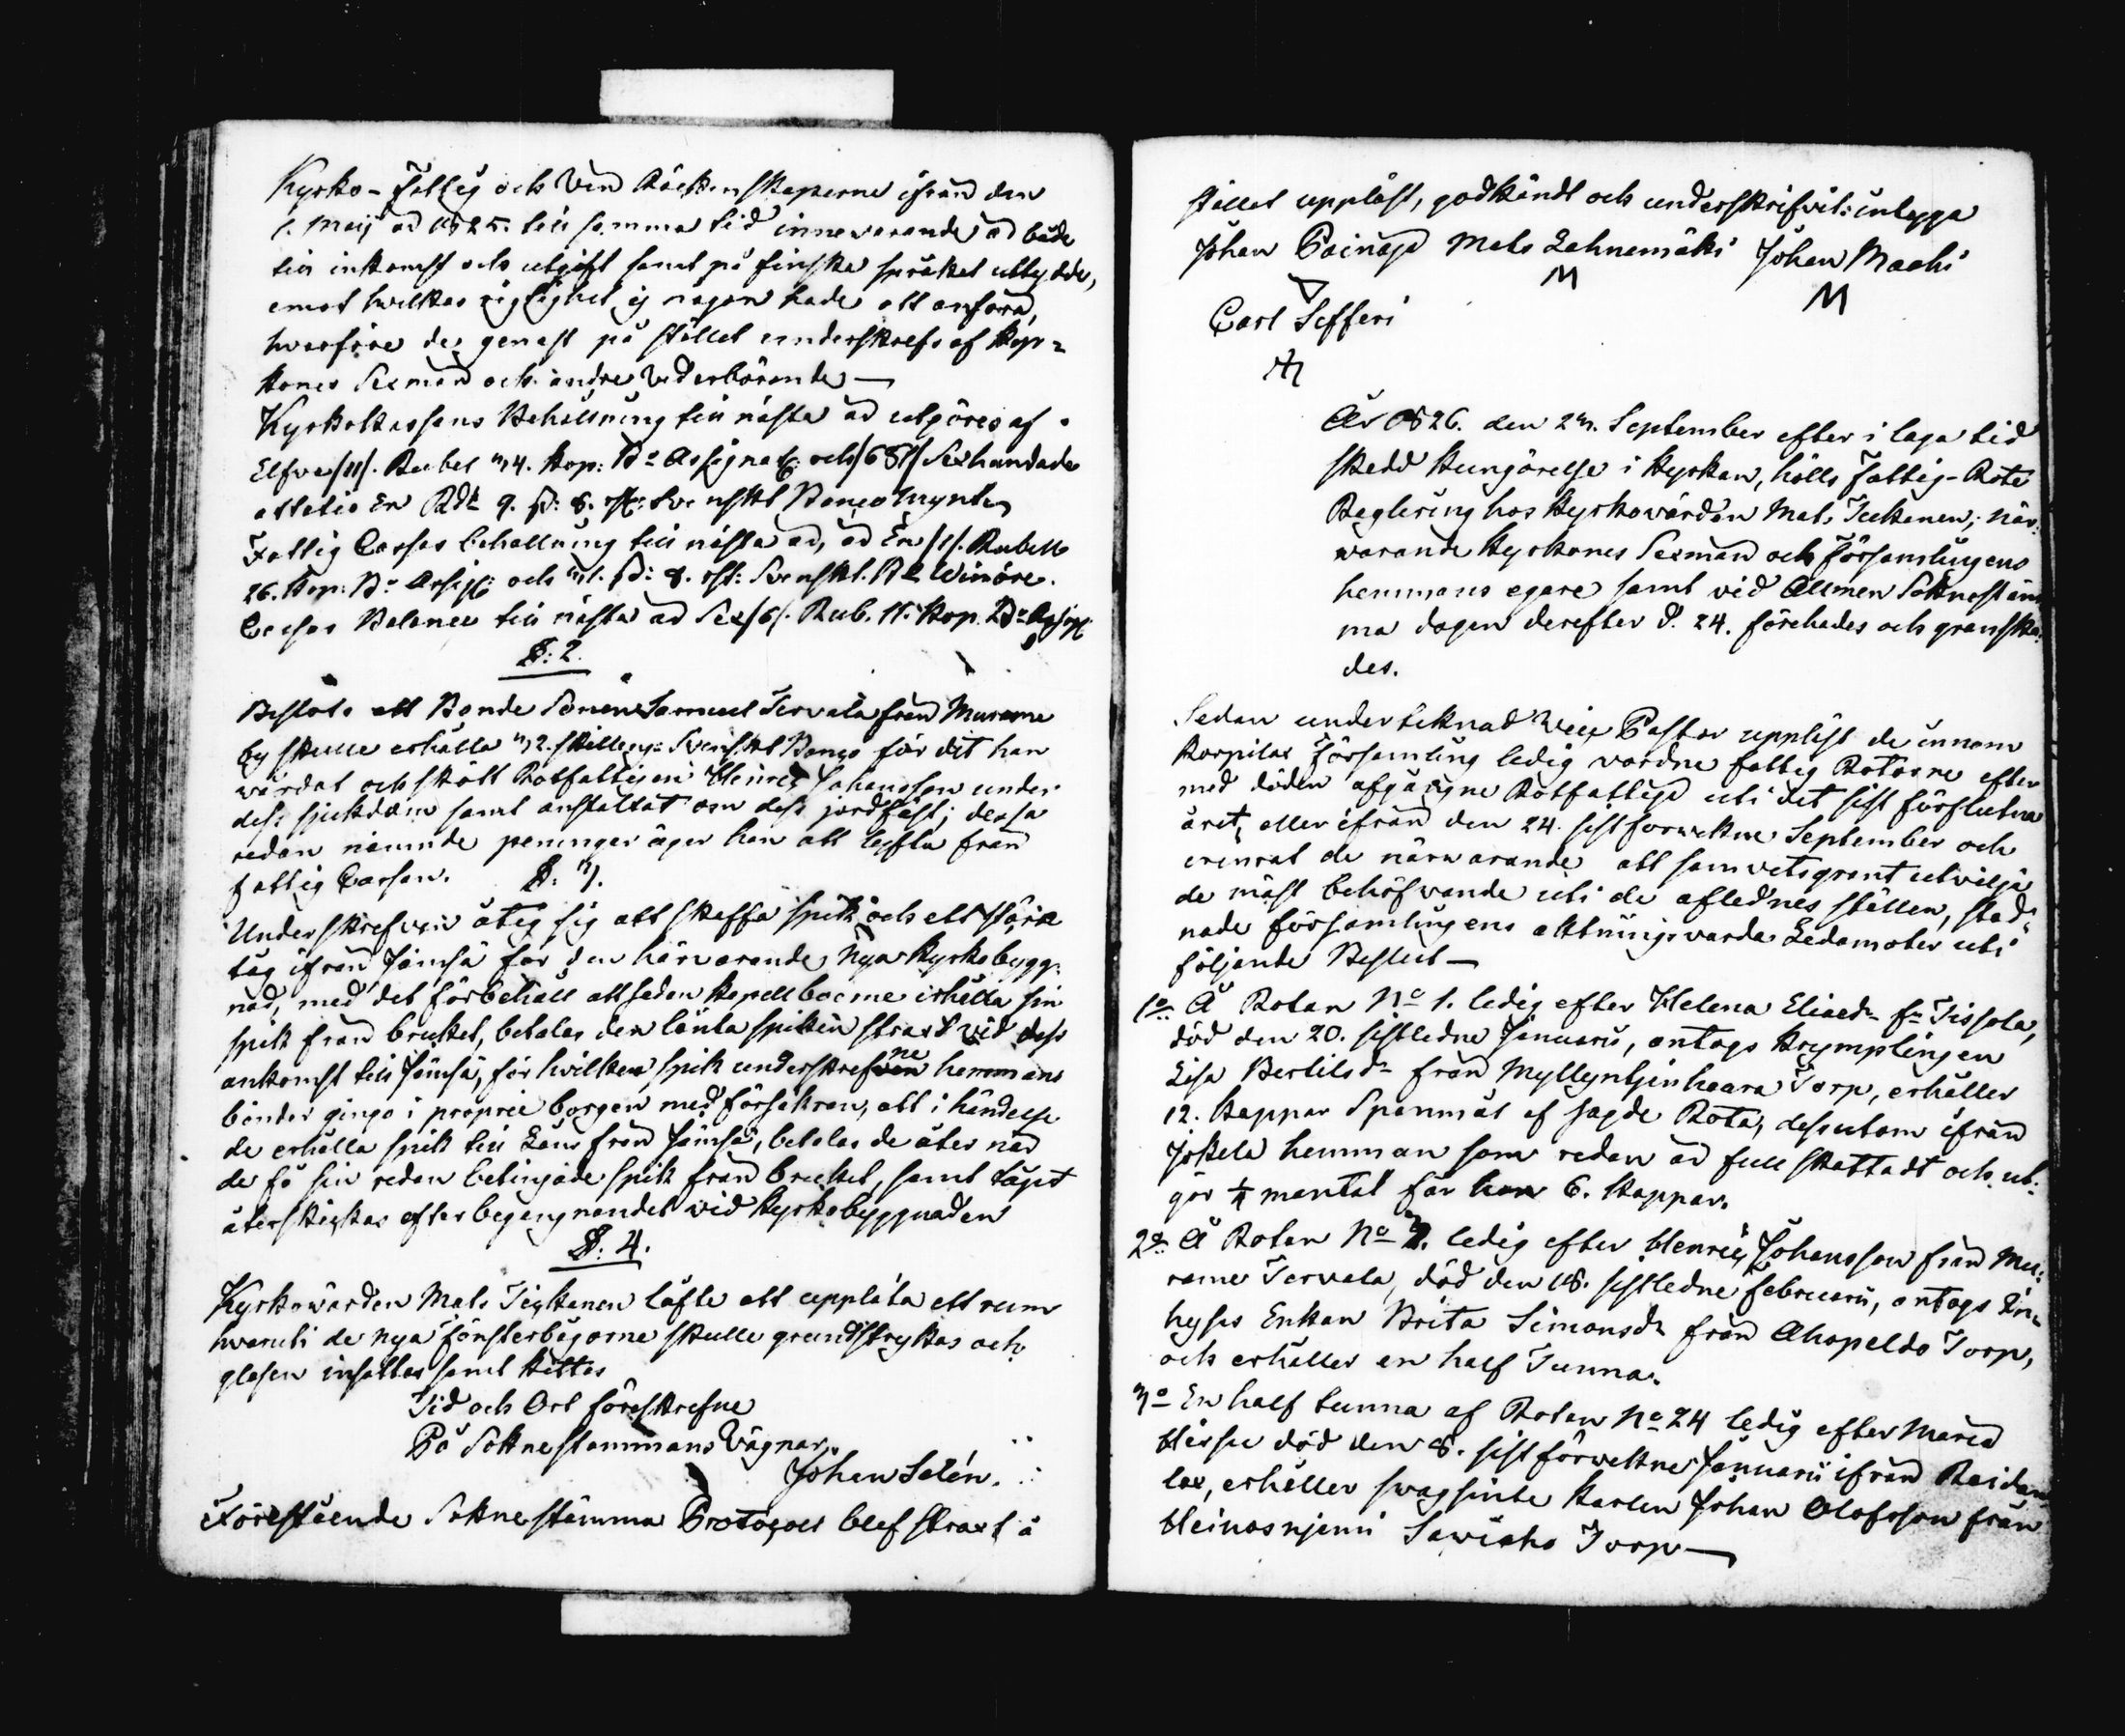 Kyrko- Fattig och Vin Räkenskaperne ifrån den
1. Maij år 1825. till samma tid innevarande år både
till inkomst och utgift samt på finska språket uttydde,
emot hvilkas rigtighet ej någon hade att anföra,
hvarföre de genast på stället underskrefs af Kyr-
kones Sexmän och andre vederbörande —
Kyrkokassans Behållning till nästa år utgöres af
Elfva /11/. Rubel 34. Kop: Bo Assignat: och /681/ Sexhundrade
attatio En Rdr 9. sk: 8. rst: Svenskt Banco Mynt
Fattig Cassas behållning till nästa år, är En /1/. Rubell
26. Kop: Bo Assig: och 31. sk: 8. rst: Svenskt. B
Cassas Balance till nästa år Sex /6/. Rub. 11. Kop. Bo Assig:
§: 2.
Beslöts att Bonde Sonen Samuel Tervala från Murame
by skulle erhålla 32. skilling: Svenskt Banco för dit han
wårdat och skött Rotfattigen Henric Johansson under
dess sjukdom samt anstaltat om dess jordfäst; dessa
redan nämnde peningar äger han att lyfta från
fattig Cassan. §: 3.
Underskrefven åtog sig att skaffa spik och ett större
tåg ifrån Jämsä för den härvarande nya Kyrkobygg-
nad, med det förbehåll att sedan Kapellboerne erhålla sin
spik från bruket, betalas den lånta spiken straxt vid dess
ankomst till Jämsä, för hvilken spik underskrefne hemmans
bönder gingo i proprie borgen med försäkran, att i händelse
de erhålla spik till Låns från Jämsä, betalas de åter när
de få sin redan betingade spik från bruket, samt tåget
återskickas efter begagnandet wid Kyrkobyggnaden
§: 4.
Kyrkowärden Mats Teikanen låfte att uppläta ett rum
hvaruti de nya fönsterbågarne skulle grundstrykas och
glasen insattas samt kittas
Tid och Ort förskrefne
På Sokne stammans Vägnar
Johan Salén.
Förestående Sokne stämma Protocoll blef straxt å
stället uppläst, godkändt och underskrifvit: intyga
Johan Poinaja Mats Lahnemäki Johan Maahi
M
M
Carl Sefferi
År 1826. den 23. September efter i laga tid
skedd kungörelse i Kyrkan, hölls Fattig-Rote
Reglering hos Kyrkowärden Mats Teikanen; när-
warande Kyrkones Sexmän och församlingens
hemmans egare samt vid Allmen Soknestäm
ma dagen derefter d. 24. förehades och granska-
des.
Sedan undertecknad Vice Pastor uppläst de innom
Korpilax Församling ledig vordne fattig Rotarne efter
med döden afgångne Rotfattige uti det sist förflutna
året, eller ifrån den 24. sist forvekne September och
erinrat de närwarande att samvetsgrant utvälja
de mäst behöfvande uti de aflednes ställen, stad-
nade församlingens aktningsvarda Ledamoter uti
följande Beslut —
1o: Å Rotan No 1. ledig efter Helena Eliaedr fr Tissola,
död den 20. sistledne Januarii, antogs Krymplingen
Lisa Bertilsdr från Myllynkjinhaara Torp, erhåller
12. Kappar Spanmål af sagde Rota, dessutom ifrån
Jokela hemman som redan är full skattadt och ut-
gör 1/4 mantal får hon 6. Kappar.
2o: Å Rotan No 3. ledig efter Henric Johansson från Mu-
rame Tervala, död den 18. sistledne februarii, antogs In-
hyses Enkan Brita Simonsdr från Ahopeldo Torp,
och erhåller en half Tunna.
3o En half tunna af Rotan No 24 ledig efter Maria
död den 8. sist förvekne Januarii ifrån
lax, erhåller svagsinte karlen Johan Olofsson från
Heinosnjemi Saviaho Torp —